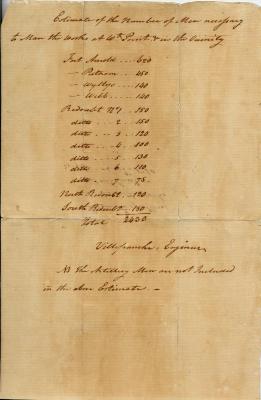 Estimate of the Number of Men necessary
to Man the Works at Wt Point & in the Vicinity
Fort Arnold ... 620
— Putnam ... 450
— Wyllys ... 140
— Webb ... 140
Redoubt No 1 . 150
ditto ... 2 . 150
ditto ... 3 . 120
ditto ... 4 . 100
ditto ... 5 . 130
ditto ... 6 . 110
ditto ... 7 . 75
North Redoubt . 120
South Redoubt . 130
Total 2430
Villefranche, Engineer
NB The Artillery Men are not Included
in the above Estimate. —